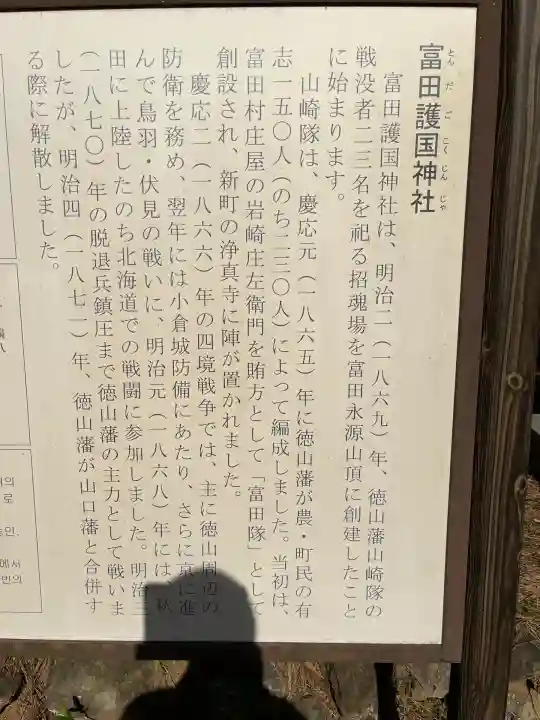 富田護国神社
とんだごこくじんじゃ
富田護国神社は、明治二（一八六九）年、徳山藩山崎隊の
戦没者二三名を祀る招魂場を富田永源山頂に創建したこと
に始まります。
山崎隊は、慶応元（一八六五）年に徳山藩が農・町民の有
志一五〇人（のち二三〇人）によって編成しました。当初は、
富田村庄屋の岩崎庄左衛門を賄方として「富田隊」として
創設され、新町の浄真寺に陣が置かれました。
慶応二（一八六六）年の四境戦争では、主に徳山周辺の
防衛を務め、翌年には小倉城防備にあたり、さらに京に進
んで鳥羽・伏見の戦いに、明治元（一八六八）年には、秋
田に上陸したのち北海道での戦闘に参加しました。明治三
（一八七〇）年の脱退兵鎮圧まで徳山藩の主力として戦いま
したが、明治四（一八七一）年、徳山藩が山口藩と合併す
る際に解散しました。